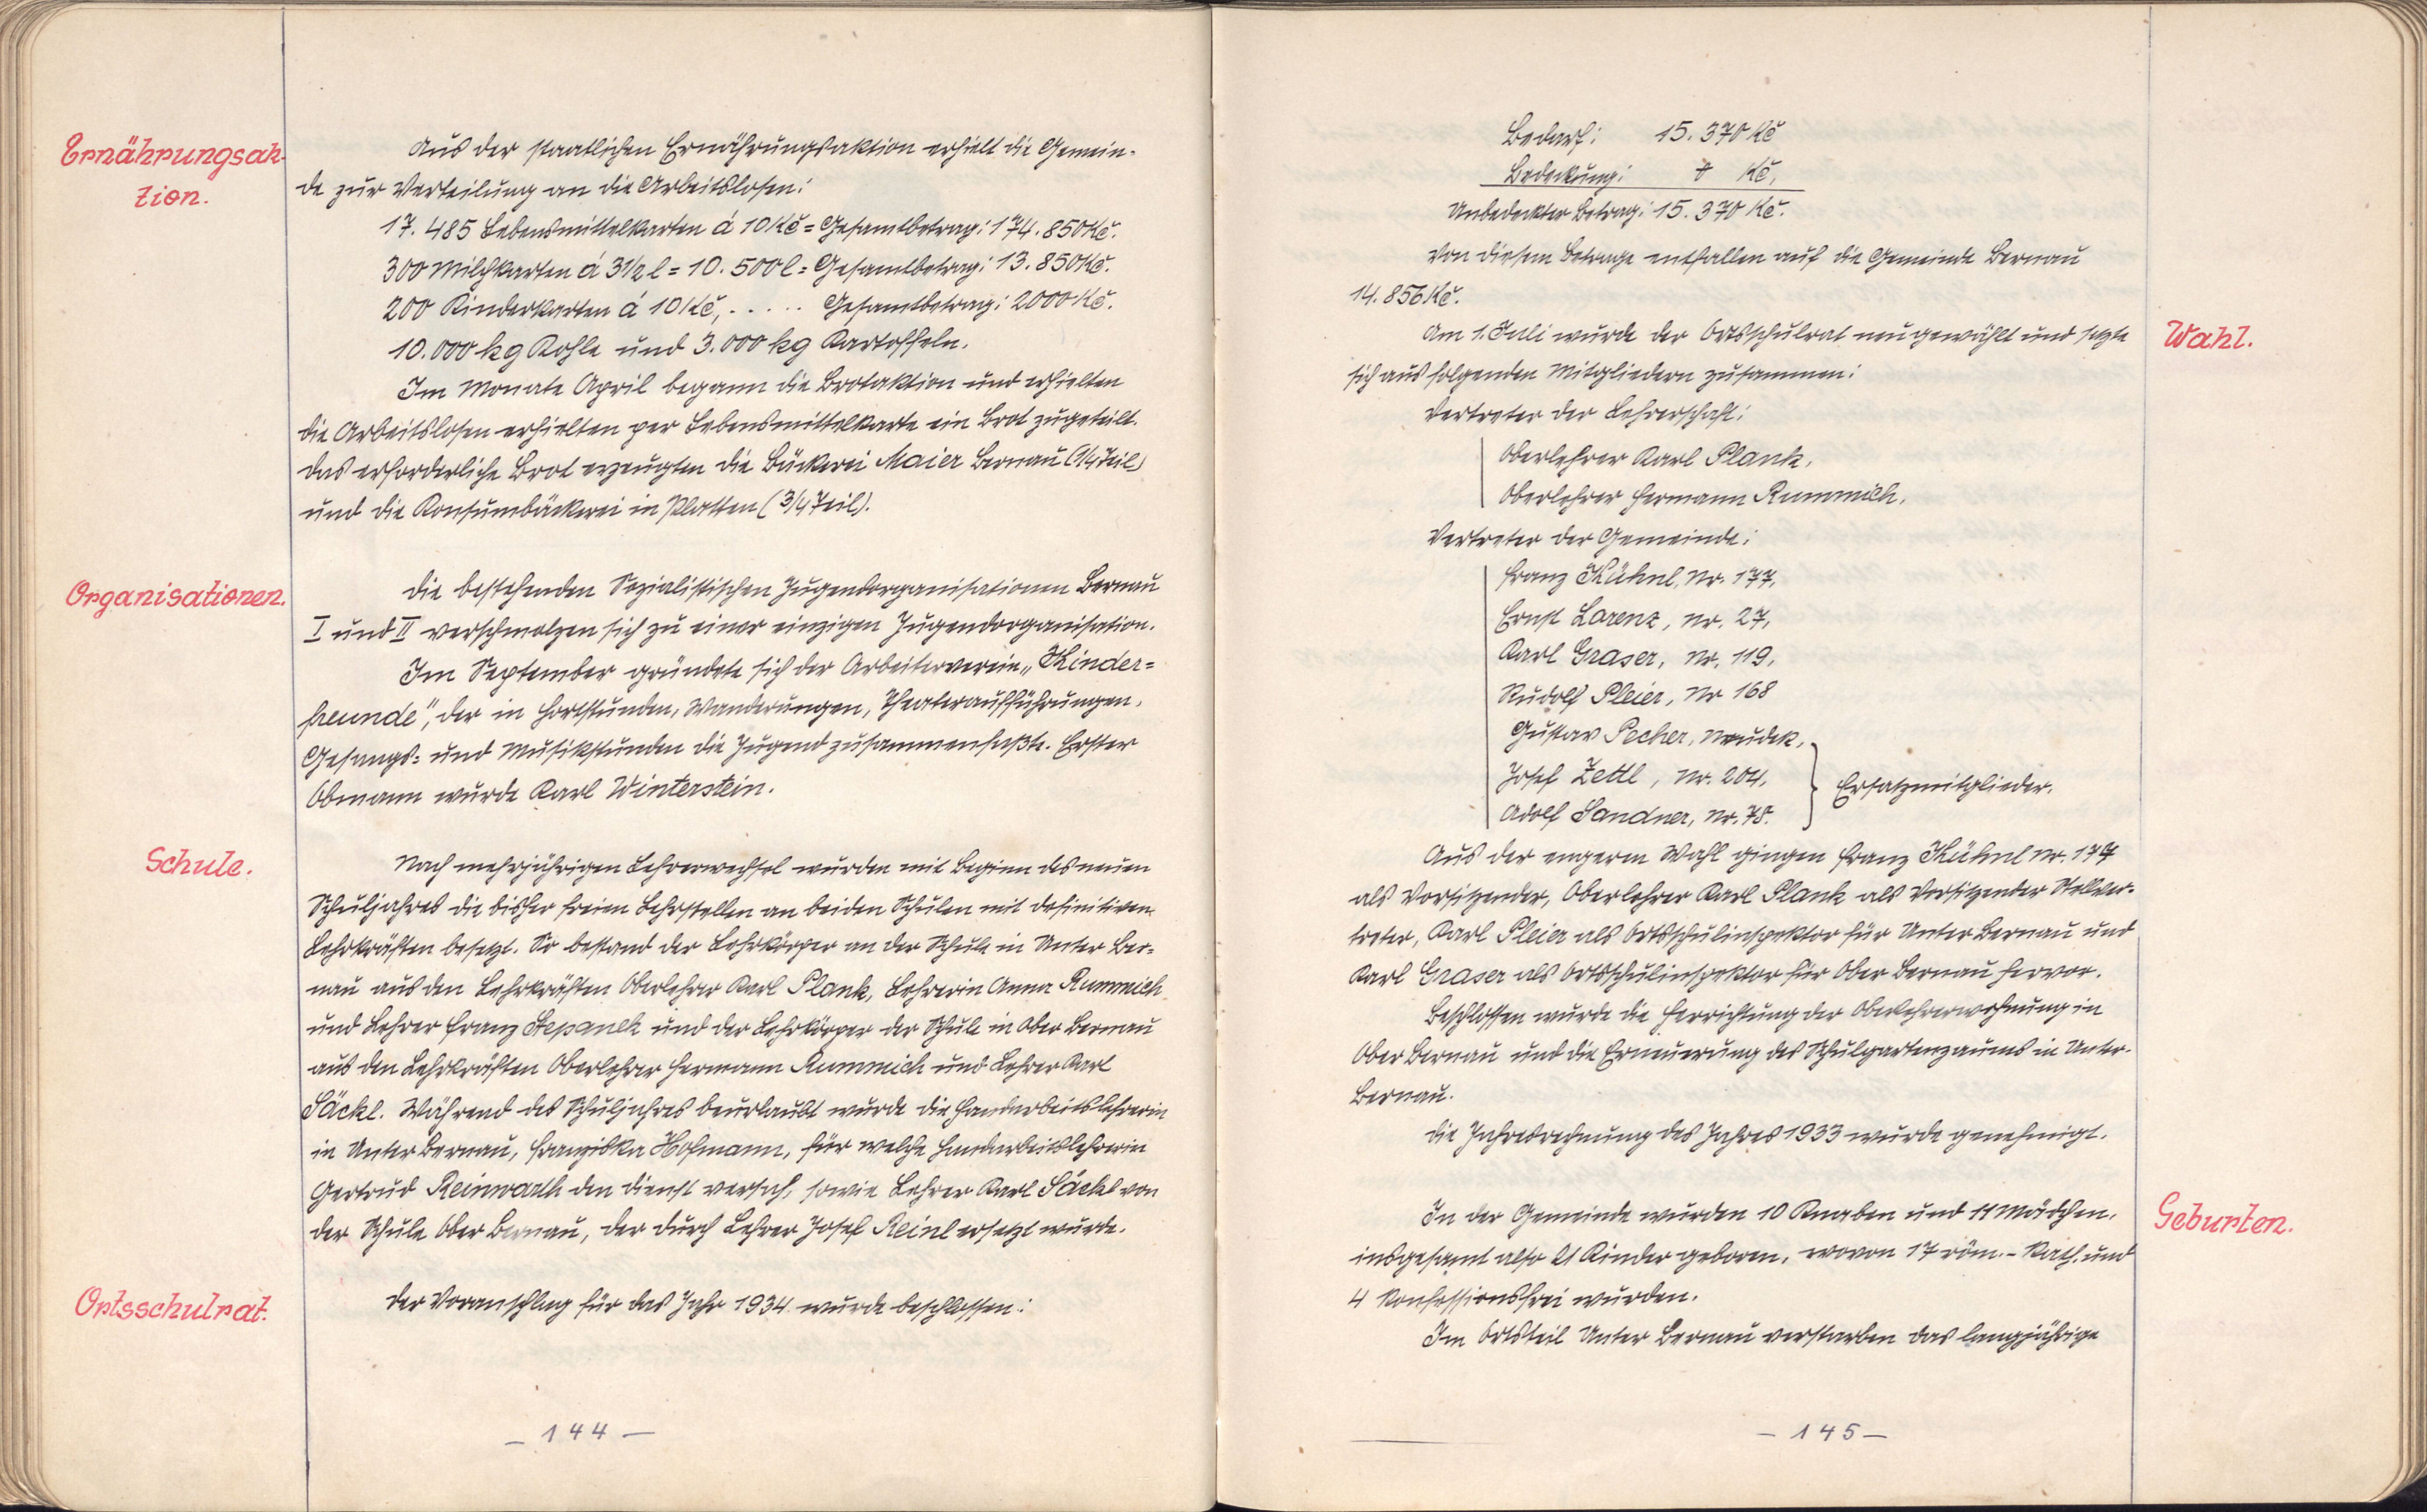 Ernährungsak-
tion.
Aus der staatlichen Ernährungsaktion erhielt die Gemein-
de zur Verteilung an die Arbeitslosen:
17.485 Lebensmittelkarten á 10 Kč = Gesamtbetrag: 174.850 Kč.
300 Milchkarten á 3 1/2 l = 10.500 l = Gesamtbetrag: 13.850 Kč.
200 Kinderkarten á 10 Kč, ..... Gesamtbetrag: 2000 Kč.
10.000 kg Kohle und 3.000 kg Kartoffeln.
Im Monate April begann die Brotaktion und erhielten
die Arbeitslosen erhielten per Lebensmittelkarte ein Brot zugeteilt.
Das erforderliche Brot erzeugten die Bäckerei Maier Bernau (1/4 Teil)
und die Konsumbäckerei in Platten (3/4 Teil).
Organisationen.
Die bestehenden Sozialistischen Jugendorganisationen Bernau
I und II verschmolzen sich zu einer einzigen Jugendorganisation.
Im September gründete sich der Arbeiterverein „Kinder=
freunde", der in Hortstunden, Wanderungen, Theateraufführungen,
Gesangs= und Musikstunden die Jugend zusammenfaßte. Erster
Obmann wurde Karl Winterstein.
Schule.
Nach mehrjährigen Lehrerwechsel wurden mit Beginn des neuen
Schuljahres die bisher freien Lehrstellen an beiden Schulen mit definitiven
Lehrkräften besetzt. So bestand der Lehrkörper an der Schule in Unter Ber=
nau aus den Lehrkräften Oberlehrer Karl Plank, Lehrerin Anna Rummich
und Lehrer Franz Stepanek und der Lehrkörper der Schule in Ober Bernau
aus den Lehrkräften Oberlehrer Hermann Rummich und Lehrer Karl
Säckl. Während des Schuljahres beurlaubt wurde die Handarbeitslehrerin
in Unter Bernau, Franziska Hofmann, für welche Handarbeitslehrerin
Gertrud Reinwarth den Dienst versah, sowie Lehrer Karl Säckl von
der Schule Ober Bernau, der durch Lehrer Josef Reinl ersetzt wurde.
Ortsschulrat.
Der Voranschlag für das Jahr 1934 wurde beschlossen:
- 144 -
Bedarf: 15.370 Kč
Bedeckung: Kč,
Unbedeckter Betrag: 15.370 Kč.
Von diesem Betrage entfallen auf die Gemeinde Bernau
14.856 Kč.
Wahl.
Am 1. Juli wurde der Ortsschulrat neu gewählt und setzte
sich aus folgenden Mitgliedern zusammen:
Vertreter der Lehrerschaft:
Oberlehrer Karl Plank,
Oberlehrer Hermann Rummich,
Vertreter der Gemeinde:
Franz Kühnl, Nr. 177,
Ernst Lorenz, Nr. 27,
Karl Graser, Nr. 119,
Rudolf Pleier, Nr 168
Gustav Pecher, Neudek,
Josef Zettl, Nr. 204,
Adolf Sandner, Nr. 78.
Ersatzmitglieder.
Aus der engeren Wahl gingen Franz Kühnl Nr. 177
als Vorsitzender, Oberlehrer Karl Plank als Vorsitzender Stellver-
treter, Karl Pleier als Ortsschulinspektor für Unter Bernau und
Karl Graser als Ortsschulinspektor für Ober Bernau hervor.
Beschlossen wurde die Herrichtung der Oberlehrerwohnung in
Ober Bernau und die Erneuerung des Schulgartenzauns in Unter-
Bernau.
Die Jahresrechnung des Jahres 1933 wurde genehmigt.
Geburten.
In der Gemeinde wurden 10 Knaben und 11 Mädchen,
insgesamt also 21 Kinder geboren, wovon 17 röm.-kath. und
4 konfessionsfrei wurden.
Im Ortsteil Unter Bernau verstarben das langjährige
- 145 -